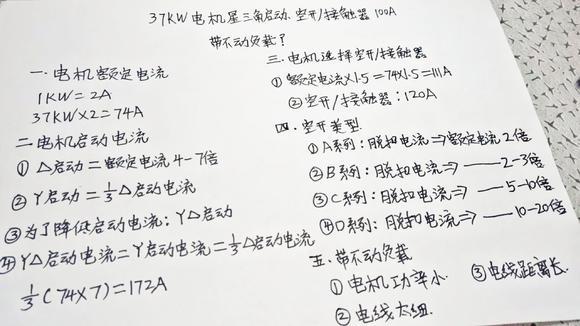 37KW电机星三角启动.空开/接触器100A
带不动负载？
一.电机额定电流
1KW=2A
37KW×2=74A
二.电机启动电流
①△启动=额定电流4-7倍
②Y启动=1/3△启动电流
③为了降低启动电流：Y△启动
④Y△启动电流=Y启动电流=1/3△启动电流
1/3(74×7)=172A
三.电机选择空开/接触器
①额定电流×1.5=74×1.5=111A
②空开/接触器：120A
四.空开类型
①A系列：脱扣电流⇒额定电流2倍
②B系列：脱扣电流⇒——2-3倍
③C系列：脱扣电流⇒——5-10倍
④D系列：脱扣电流⇒——10-20倍
五.带不动负载
①电机功率小
②电线太细.
③电线距离长.